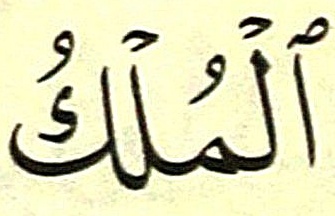 ٱلْمُلْكُ